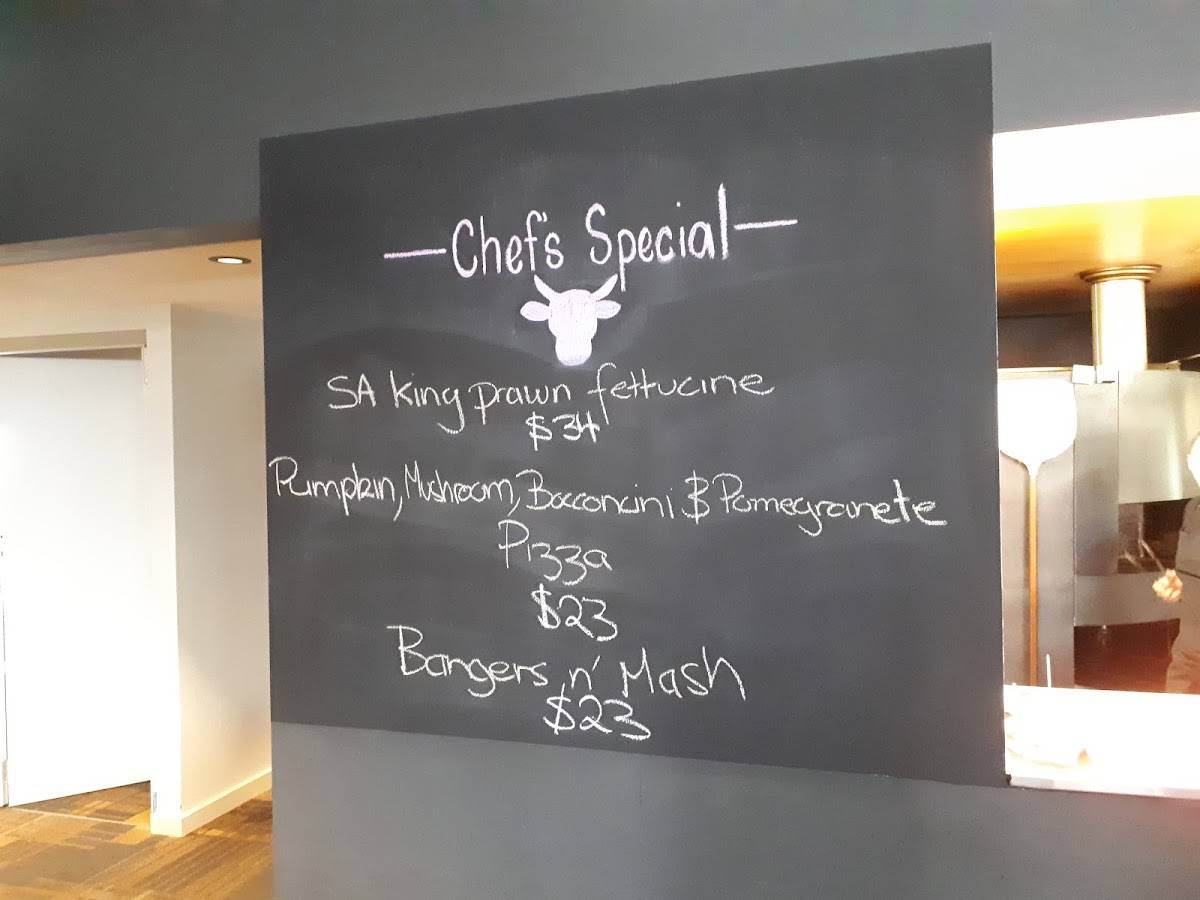 —Chef's Special—
SA King prawn fettucine
$34
Pumpkin, Mushroom, Bocconcini & Pomegranete
Pizza
$23
Bangers n' Mash
$23